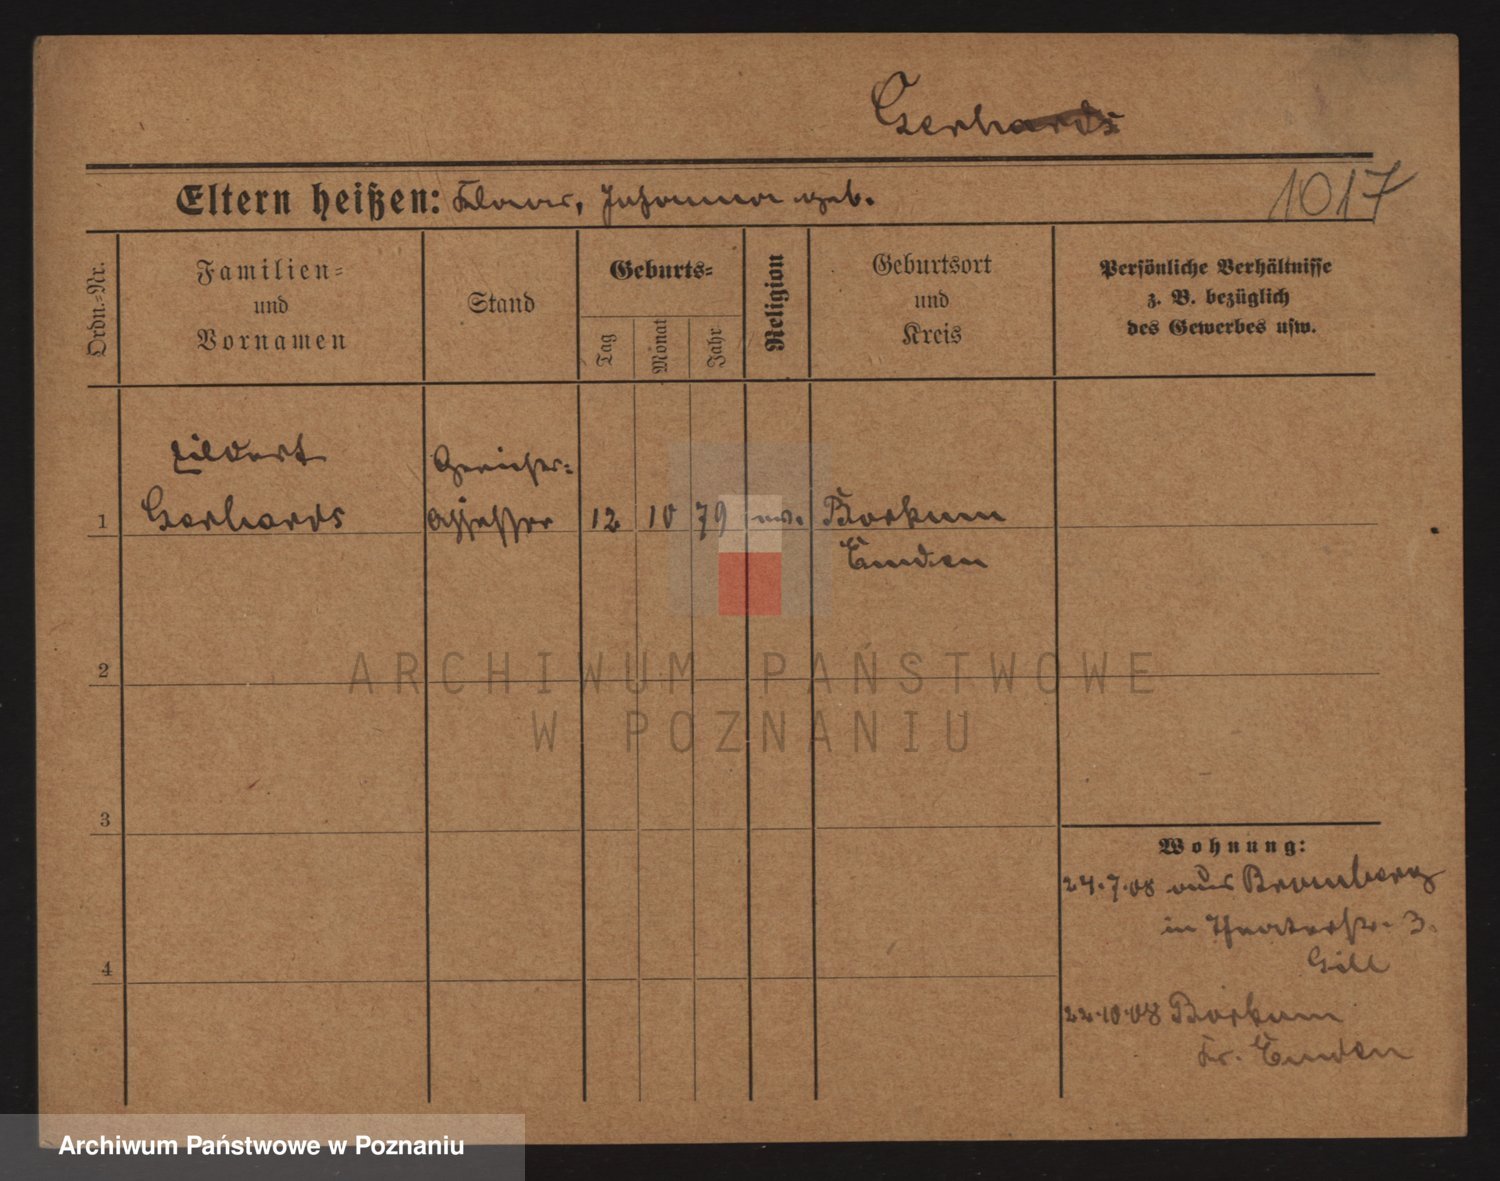 Gerhards
Eltern heißen: Klaas, Johanna geb.
1017
Ordn.-Nr.
Familien-
und
Vornamen
Stand
Geburts-
Tag
Monat
Jahr
Religion
Geburtsort
und
Kreis
Persönliche Verhältnisse
z. B. bezüglich
des Gewerbes usw.
Gerichts-
1 Gerhards assessor 12 10 79 ev. Borkum
Emden
2
3
4
Wohnung:
24.7.08 aus Bromberg
in Theaterstr. 3.
Gill
22.10.08 Borkum
Kr. Emden
ARCHIWUM PAŃSTWOWE
W POZNANIU
Archiwum Państwowe w Poznaniu